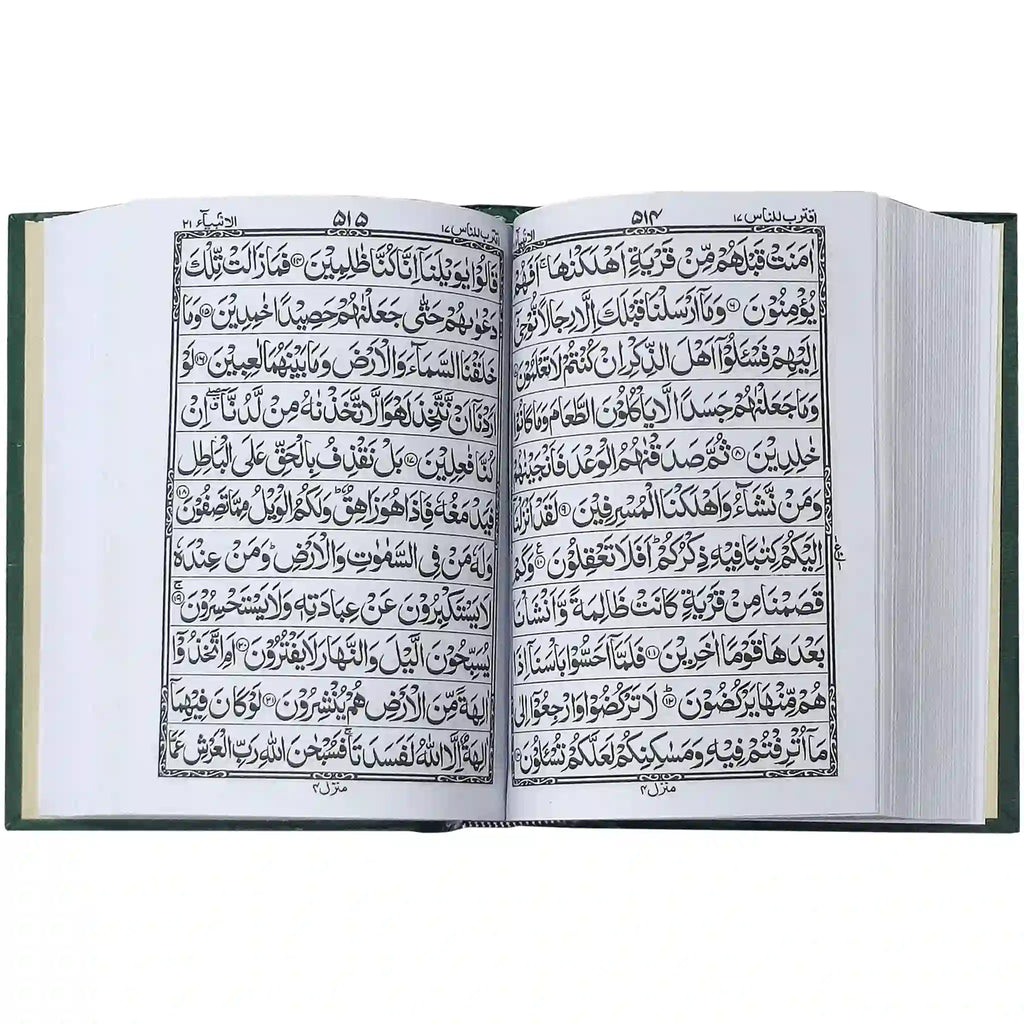 اقترب للناس ۱۷ ۵۱۴ الانبیآء
اٰمَنَتْ قَبْلَهُمْ مِّنْ قَرْيَةٍ اَهْلَكْنٰهَا ۚ اَفَهُمْ
يُؤْمِنُوْنَ ۶ وَمَآ اَرْسَلْنَا قَبْلَكَ اِلَّا رِجَالًا نُّوْحِيْٓ
اِلَيْهِمْ فَسْـَٔلُوْٓا اَهْلَ الذِّكْرِ اِنْ كُنْتُمْ لَا تَعْلَمُوْنَ
وَمَا جَعَلْنٰهُمْ جَسَدًا لَّا يَاْكُلُوْنَ الطَّعَامَ وَمَا كَانُوْا
خٰلِدِيْنَ ۸ ثُمَّ صَدَقْنٰهُمُ الْوَعْدَ فَاَنْجَيْنٰهُمْ
وَمَنْ نَّشَآءُ وَاَهْلَكْنَا الْمُسْرِفِيْنَ ۹ لَقَدْ اَنْزَلْنَآ
اِلَيْكُمْ كِتٰبًا فِيْهِ ذِكْرُكُمْ ؕ اَفَلَا تَعْقِلُوْنَ ۱۰ وَكَمْ
قَصَمْنَا مِنْ قَرْيَةٍ كَانَتْ ظَالِمَةً وَّاَنْشَاْنَا
بَعْدَهَا قَوْمًا اٰخَرِيْنَ ۱۱ فَلَمَّآ اَحَسُّوْا بَاْسَنَآ اِذَا
هُمْ مِّنْهَا يَرْكُضُوْنَ ۱۲ لَا تَرْكُضُوْا وَارْجِعُوْٓا اِلٰى
مَآ اُتْرِفْتُمْ فِيْهِ وَمَسٰكِنِكُمْ لَعَلَّكُمْ تُسْـَٔلُوْنَ
منزل ۴
اقترب للناس ۱۷ ۵۱۵ الانبیآء ۲۱
قَالُوْا يٰوَيْلَنَآ اِنَّا كُنَّا ظٰلِمِيْنَ ۱۴ فَمَا زَالَتْ تِّلْكَ
دَعْوٰىهُمْ حَتّٰى جَعَلْنٰهُمْ حَصِيْدًا خٰمِدِيْنَ ۱۵ وَمَا
خَلَقْنَا السَّمَآءَ وَالْاَرْضَ وَمَا بَيْنَهُمَا لٰعِبِيْنَ ۱۶ لَوْ
اَرَدْنَآ اَنْ نَّتَّخِذَ لَهْوًا لَّاتَّخَذْنٰهُ مِنْ لَّدُنَّآ ۖ اِنْ
كُنَّا فٰعِلِيْنَ ۱۷ بَلْ نَقْذِفُ بِالْحَقِّ عَلَى الْبَاطِلِ
فَيَدْمَغُهٗ فَاِذَا هُوَ زَاهِقٌ ؕ وَلَكُمُ الْوَيْلُ مِمَّا تَصِفُوْنَ ۱۸
وَلَهٗ مَنْ فِى السَّمٰوٰتِ وَالْاَرْضِ ؕ وَمَنْ عِنْدَهٗ
لَا يَسْتَكْبِرُوْنَ عَنْ عِبَادَتِهٖ وَلَا يَسْتَحْسِرُوْنَ ۱۹
يُسَبِّحُوْنَ الَّيْلَ وَالنَّهَارَ لَا يَفْتُرُوْنَ ۲۰ اَمِ اتَّخَذُوْٓا
اٰلِهَةً مِّنَ الْاَرْضِ هُمْ يُنْشِرُوْنَ ۲۱ لَوْ كَانَ فِيْهِمَآ
اٰلِهَةٌ اِلَّا اللّٰهُ لَفَسَدَتَا ۚ فَسُبْحٰنَ اللّٰهِ رَبِّ الْعَرْشِ عَمَّا
منزل ۴